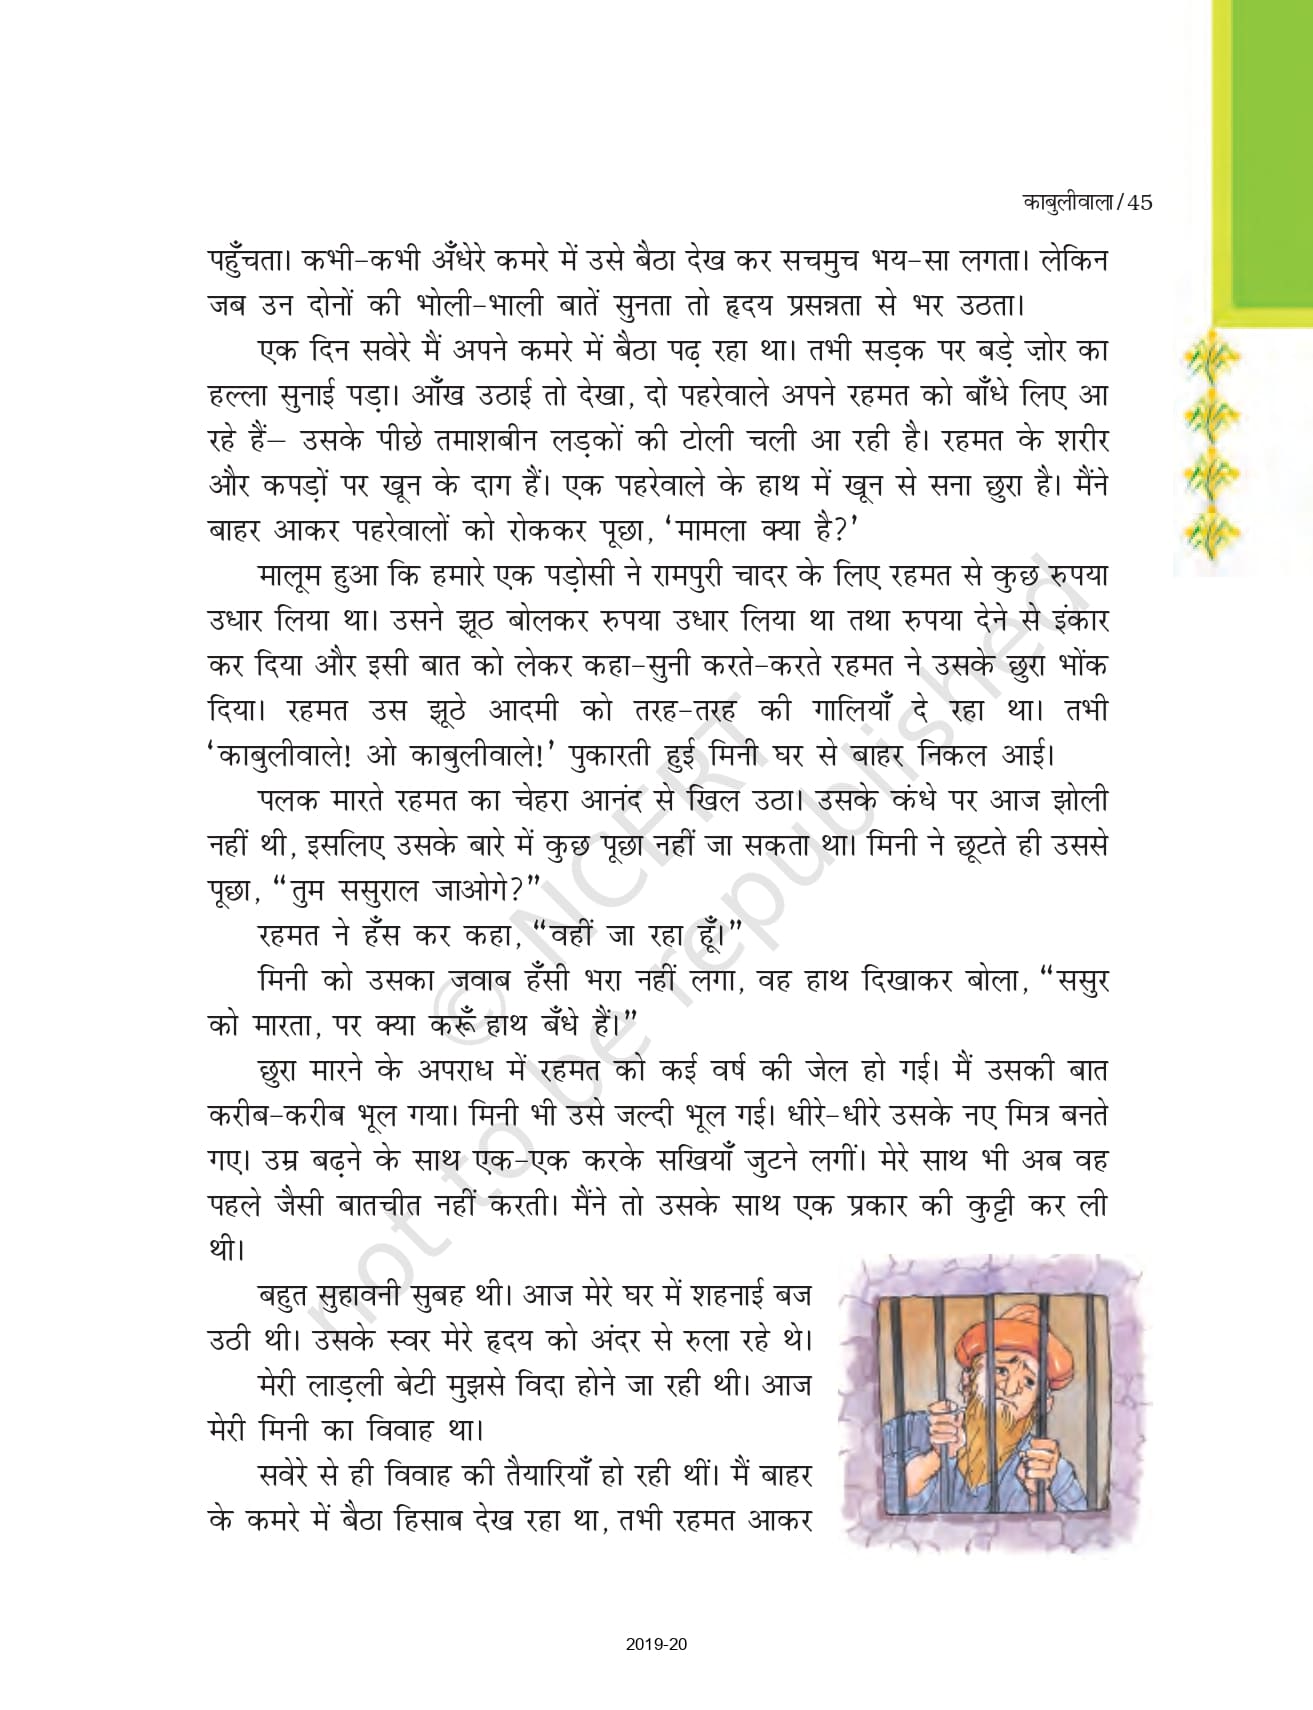 काबुलीवाला/45
पहुँचता। कभी-कभी अँधेरे कमरे में उसे बैठा देख कर सचमुच भय-सा लगता। लेकिन
जब उन दोनों की भोली-भाली बातें सुनता तो हृदय प्रसन्नता से भर उठता।
एक दिन सवेरे मैं अपने कमरे में बैठा पढ़ रहा था। तभी सड़क पर बड़े ज़ोर का
हल्ला सुनाई पड़ा। आँख उठाई तो देखा, दो पहरेवाले अपने रहमत को बाँधे लिए आ
रहे हैं– उसके पीछे तमाशबीन लड़कों की टोली चली आ रही है। रहमत के शरीर
और कपड़ों पर खून के दाग हैं। एक पहरेवाले के हाथ में खून से सना छुरा है। मैंने
बाहर आकर पहरेवालों को रोककर पूछा, ‘मामला क्या है?’
मालूम हुआ कि हमारे एक पड़ोसी ने रामपुरी चादर के लिए रहमत से कुछ रुपया
उधार लिया था। उसने झूठ बोलकर रुपया उधार लिया था तथा रुपया देने से इंकार
कर दिया और इसी बात को लेकर कहा-सुनी करते-करते रहमत ने उसके छुरा भोंक
दिया। रहमत उस झूठे आदमी को तरह-तरह की गालियाँ दे रहा था। तभी
‘काबुलीवाले! ओ काबुलीवाले!’ पुकारती हुई मिनी घर से बाहर निकल आई।
पलक मारते रहमत का चेहरा आनंद से खिल उठा। उसके कंधे पर आज झोली
नहीं थी, इसलिए उसके बारे में कुछ पूछा नहीं जा सकता था। मिनी ने छूटते ही उससे
पूछा, “तुम ससुराल जाओगे?”
रहमत ने हँस कर कहा, “वहीं जा रहा हूँ।”
मिनी को उसका जवाब हँसी भरा नहीं लगा, वह हाथ दिखाकर बोला, “ससुर
को मारता, पर क्या करूँ हाथ बँधे हैं।”
छुरा मारने के अपराध में रहमत को कई वर्ष की जेल हो गई। मैं उसकी बात
करीब-करीब भूल गया। मिनी भी उसे जल्दी भूल गई। धीरे-धीरे उसके नए मित्र बनते
गए। उम्र बढ़ने के साथ एक-एक करके सखियाँ जुटने लगीं। मेरे साथ भी अब वह
पहले जैसी बातचीत नहीं करती। मैंने तो उसके साथ एक प्रकार की कुट्टी कर ली
थी।
बहुत सुहावनी सुबह थी। आज मेरे घर में शहनाई बज
उठी थी। उसके स्वर मेरे हृदय को अंदर से रुला रहे थे।
मेरी लाड़ली बेटी मुझसे विदा होने जा रही थी। आज
मेरी मिनी का विवाह था।
सवेरे से ही विवाह की तैयारियाँ हो रही थीं। मैं बाहर
के कमरे में बैठा हिसाब देख रहा था, तभी रहमत आकर
© NCERT
not to be republished
2019-20